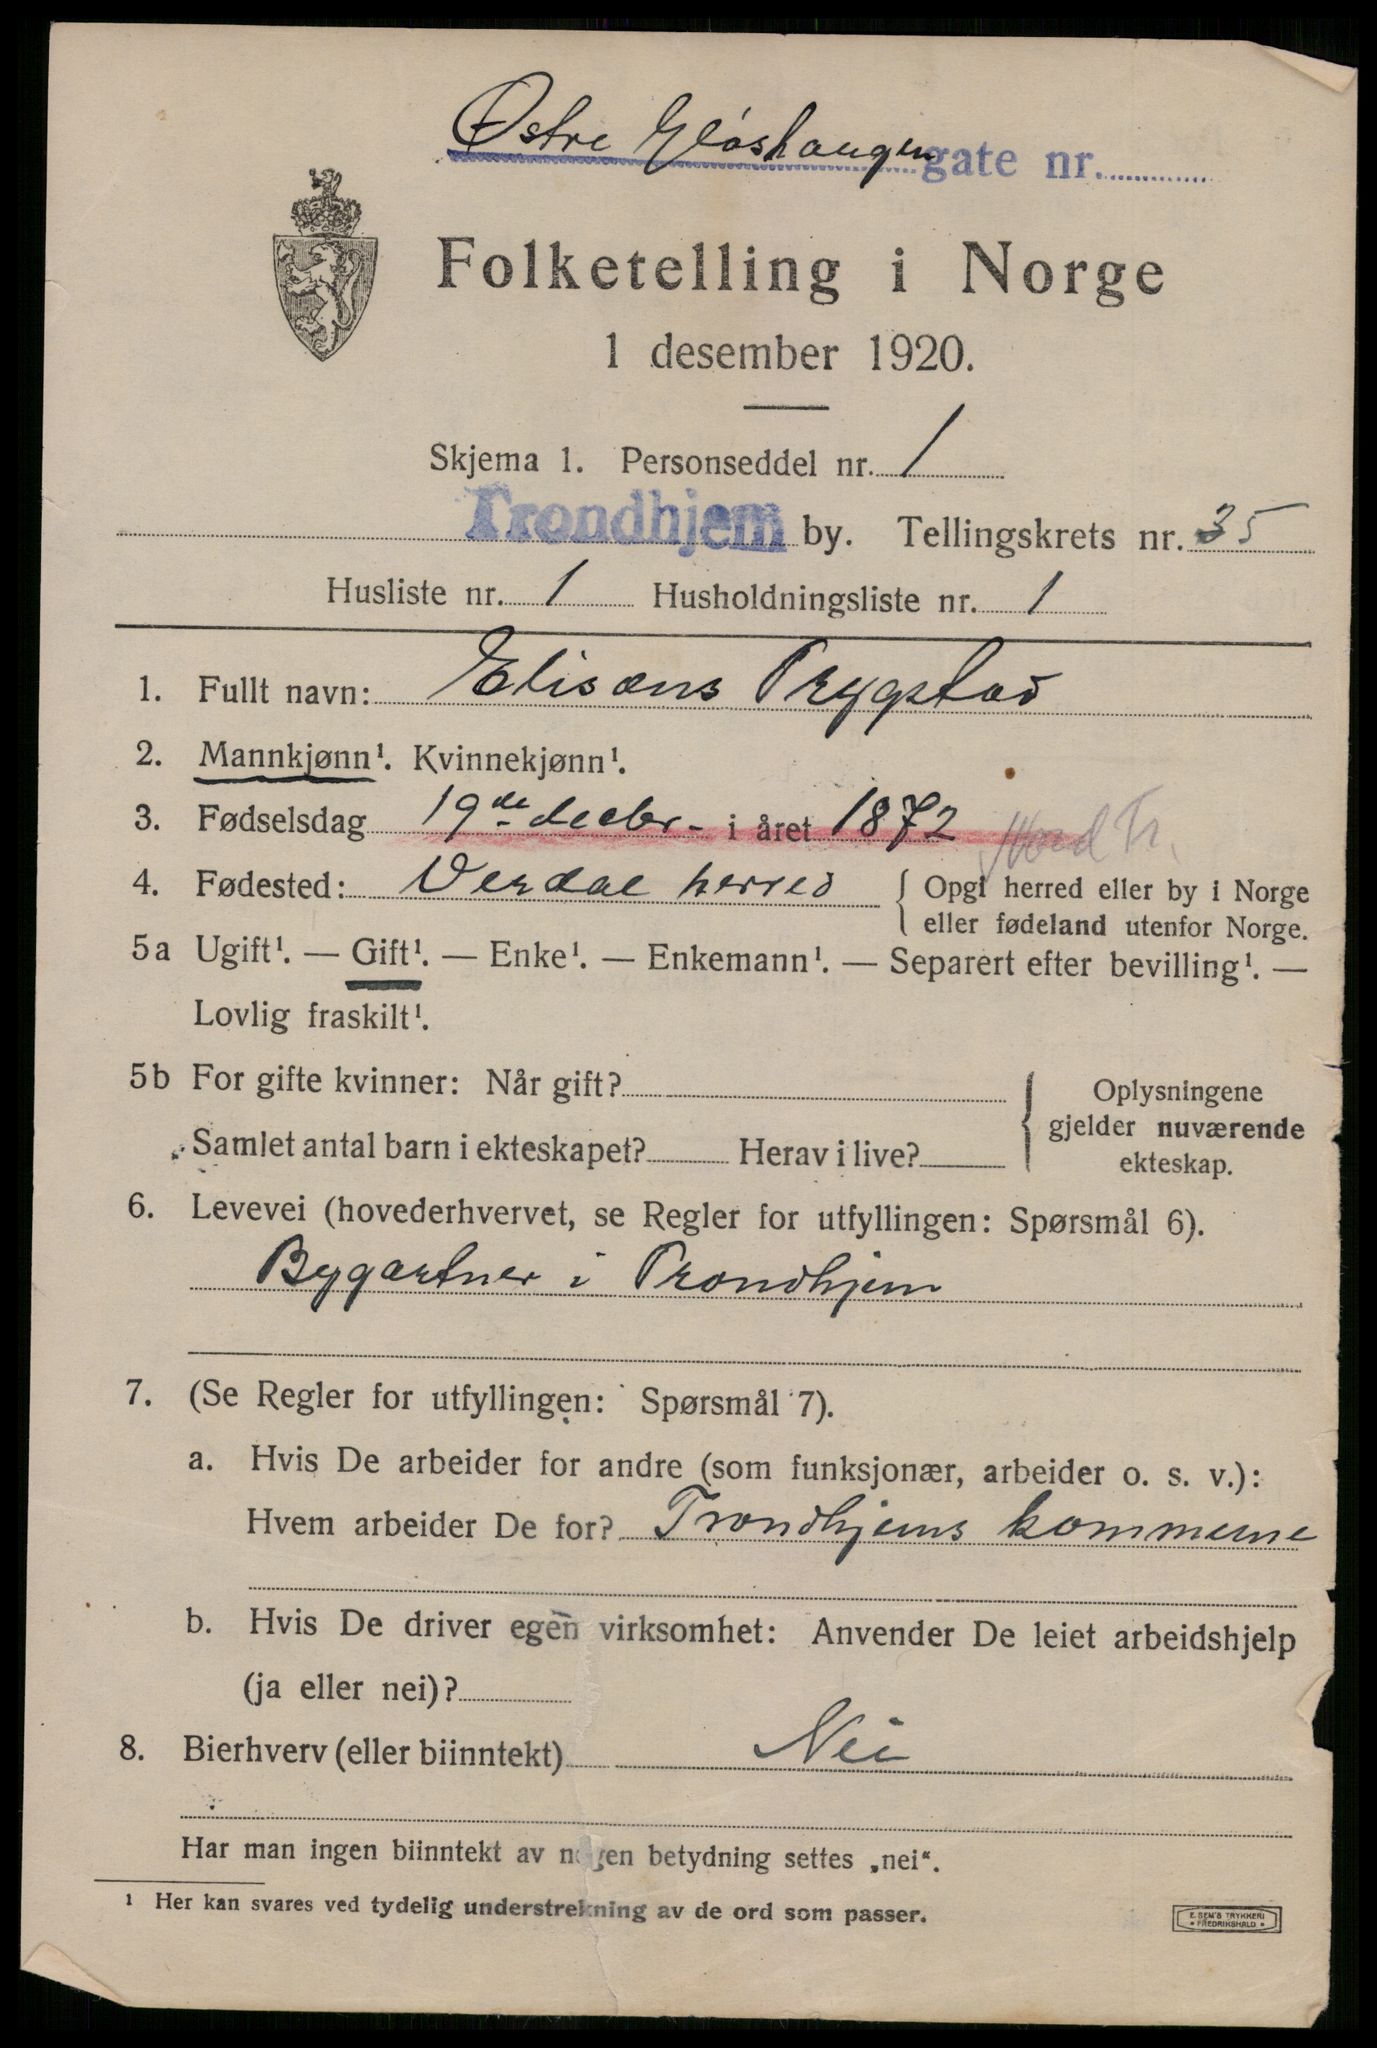 Østre Gløshaugen gate nr.
Folketelling i Norge
1 desember 1920.
Skjema 1. Personseddel nr. 1
Trondhjem by. Tellingskrets nr. 35
Husliste nr. 1 Husholdningsliste nr. 1
1. Fullt navn: Elisæus Trygstad
2. Mannkjønn¹. Kvinnekjønn¹.
3. Fødselsdag 19de decbr. i året 1872 Nord Tr.
4. Fødested: Verdal herred { Opgi herred eller by i Norge
eller fødeland utenfor Norge.
5a Ugift¹. — Gift¹. — Enke¹. — Enkemann¹. — Separert efter bevilling¹. —
Lovlig fraskilt¹.
5b For gifte kvinner: Når gift? { Oplysningene
gjelder nuværende
Samlet antal barn i ekteskapet? Herav i live? ekteskap.
6. Levevei (hovederhvervet, se Regler for utfyllingen: Spørsmål 6).
Bygartner i Trondhjem
7. (Se Regler for utfyllingen: Spørsmål 7).
a. Hvis De arbeider for andre (som funksjonær, arbeider o. s. v.):
Hvem arbeider De for? Trondhjems kommune
b. Hvis De driver egen virksomhet: Anvender De leiet arbeidshjelp
(ja eller nei)?
8. Bierhverv (eller biinntekt) Nei
Har man ingen biinntekt av nogen betydning settes „nei“.
¹ Her kan svares ved tydelig understrekning av de ord som passer.
E. SEM'S TRYKKERI
• FREDRIKSHALD •